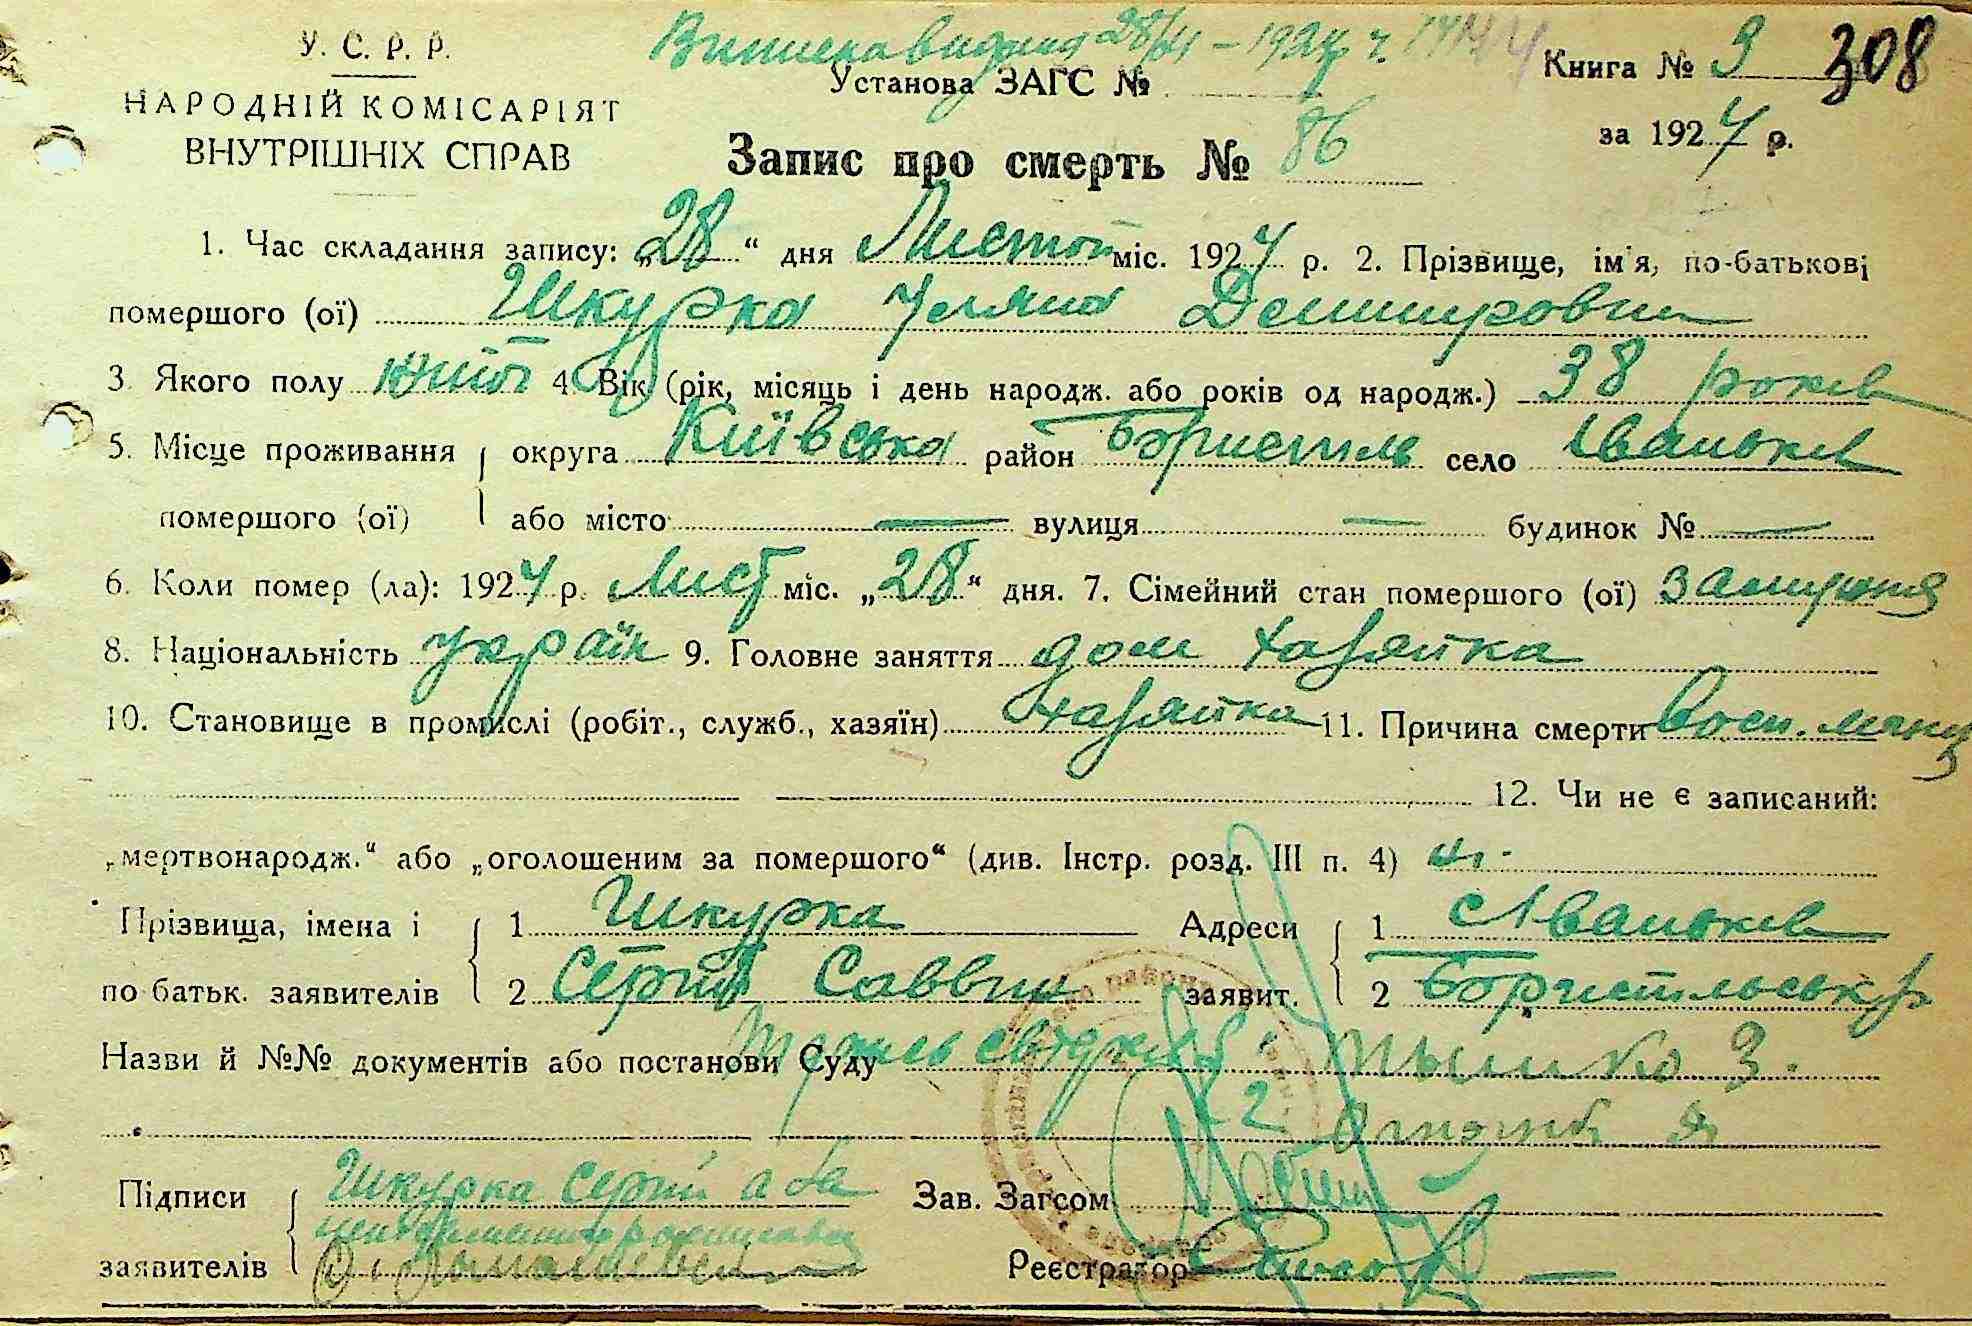 У. С. Р. Р.
НАРОДНІЙ КОМІСАРІЯТ
ВНУТРІШНІХ СПРАВ
28/XI – 1924 р.
Установа ЗАГС №
Книга № 9 308
за 1924 р.
Запис про смерть № 86
1. Час складання запису: „28“ дня Листоп міс. 1924 р. 2. Прізвище, ім'я, по-батькові
помершого (ої) Шкурка Уляна
3 Якого полу 4. Вік (рік, місяць і день народж. або років од народж.) 38 років
5. Місце проживання округа Київська район Бориспіль село Іваньків
помершого (ої) або місто — вулиця — будинок № —
6. Коли помер (ла): 1924 р. Лист міс. „28“ дня. 7. Сімейний стан помершого (ої) замужня
8. Національність україн 9. Головне заняття дом хазяйка
10. Становище в промислі (робіт., служб., хазяїн) хазяйка 11. Причина смерти
12. Чи не є записаний:
„мертвонародж.“ або „оголошеним за помершого“ (див. Інстр. розд. III п. 4) ні.
Прізвища, імена і 1 Шкурка Адреси 1 Іваньків
по батьк. заявителів 2 Сергій Саввич заявит. 2
Назви й №№ документів або постанови Суду
Підписи Шкурка Сергій а за Зав. Загсом
заявителів Реєстратор